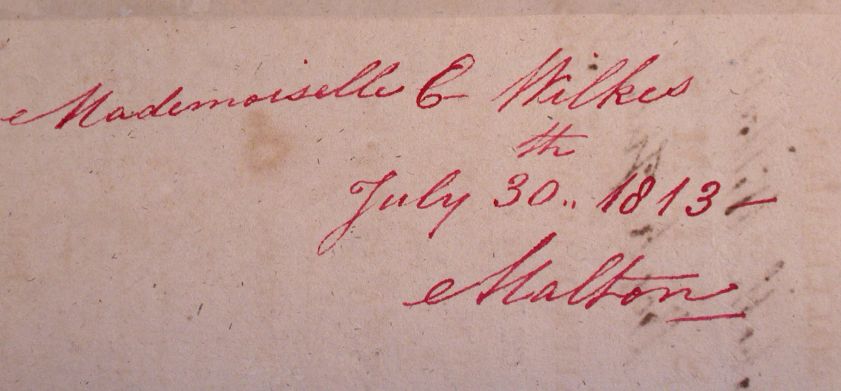 Mademoiselle E Wilkes
July 30th.. 1813 –
Malton